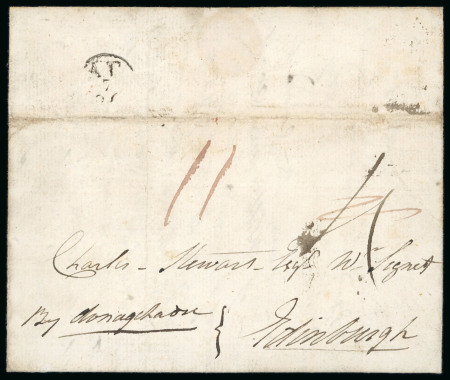 11
Charles - Stewart - Esqr Wr Signet
By donaghadee
Edinburgh